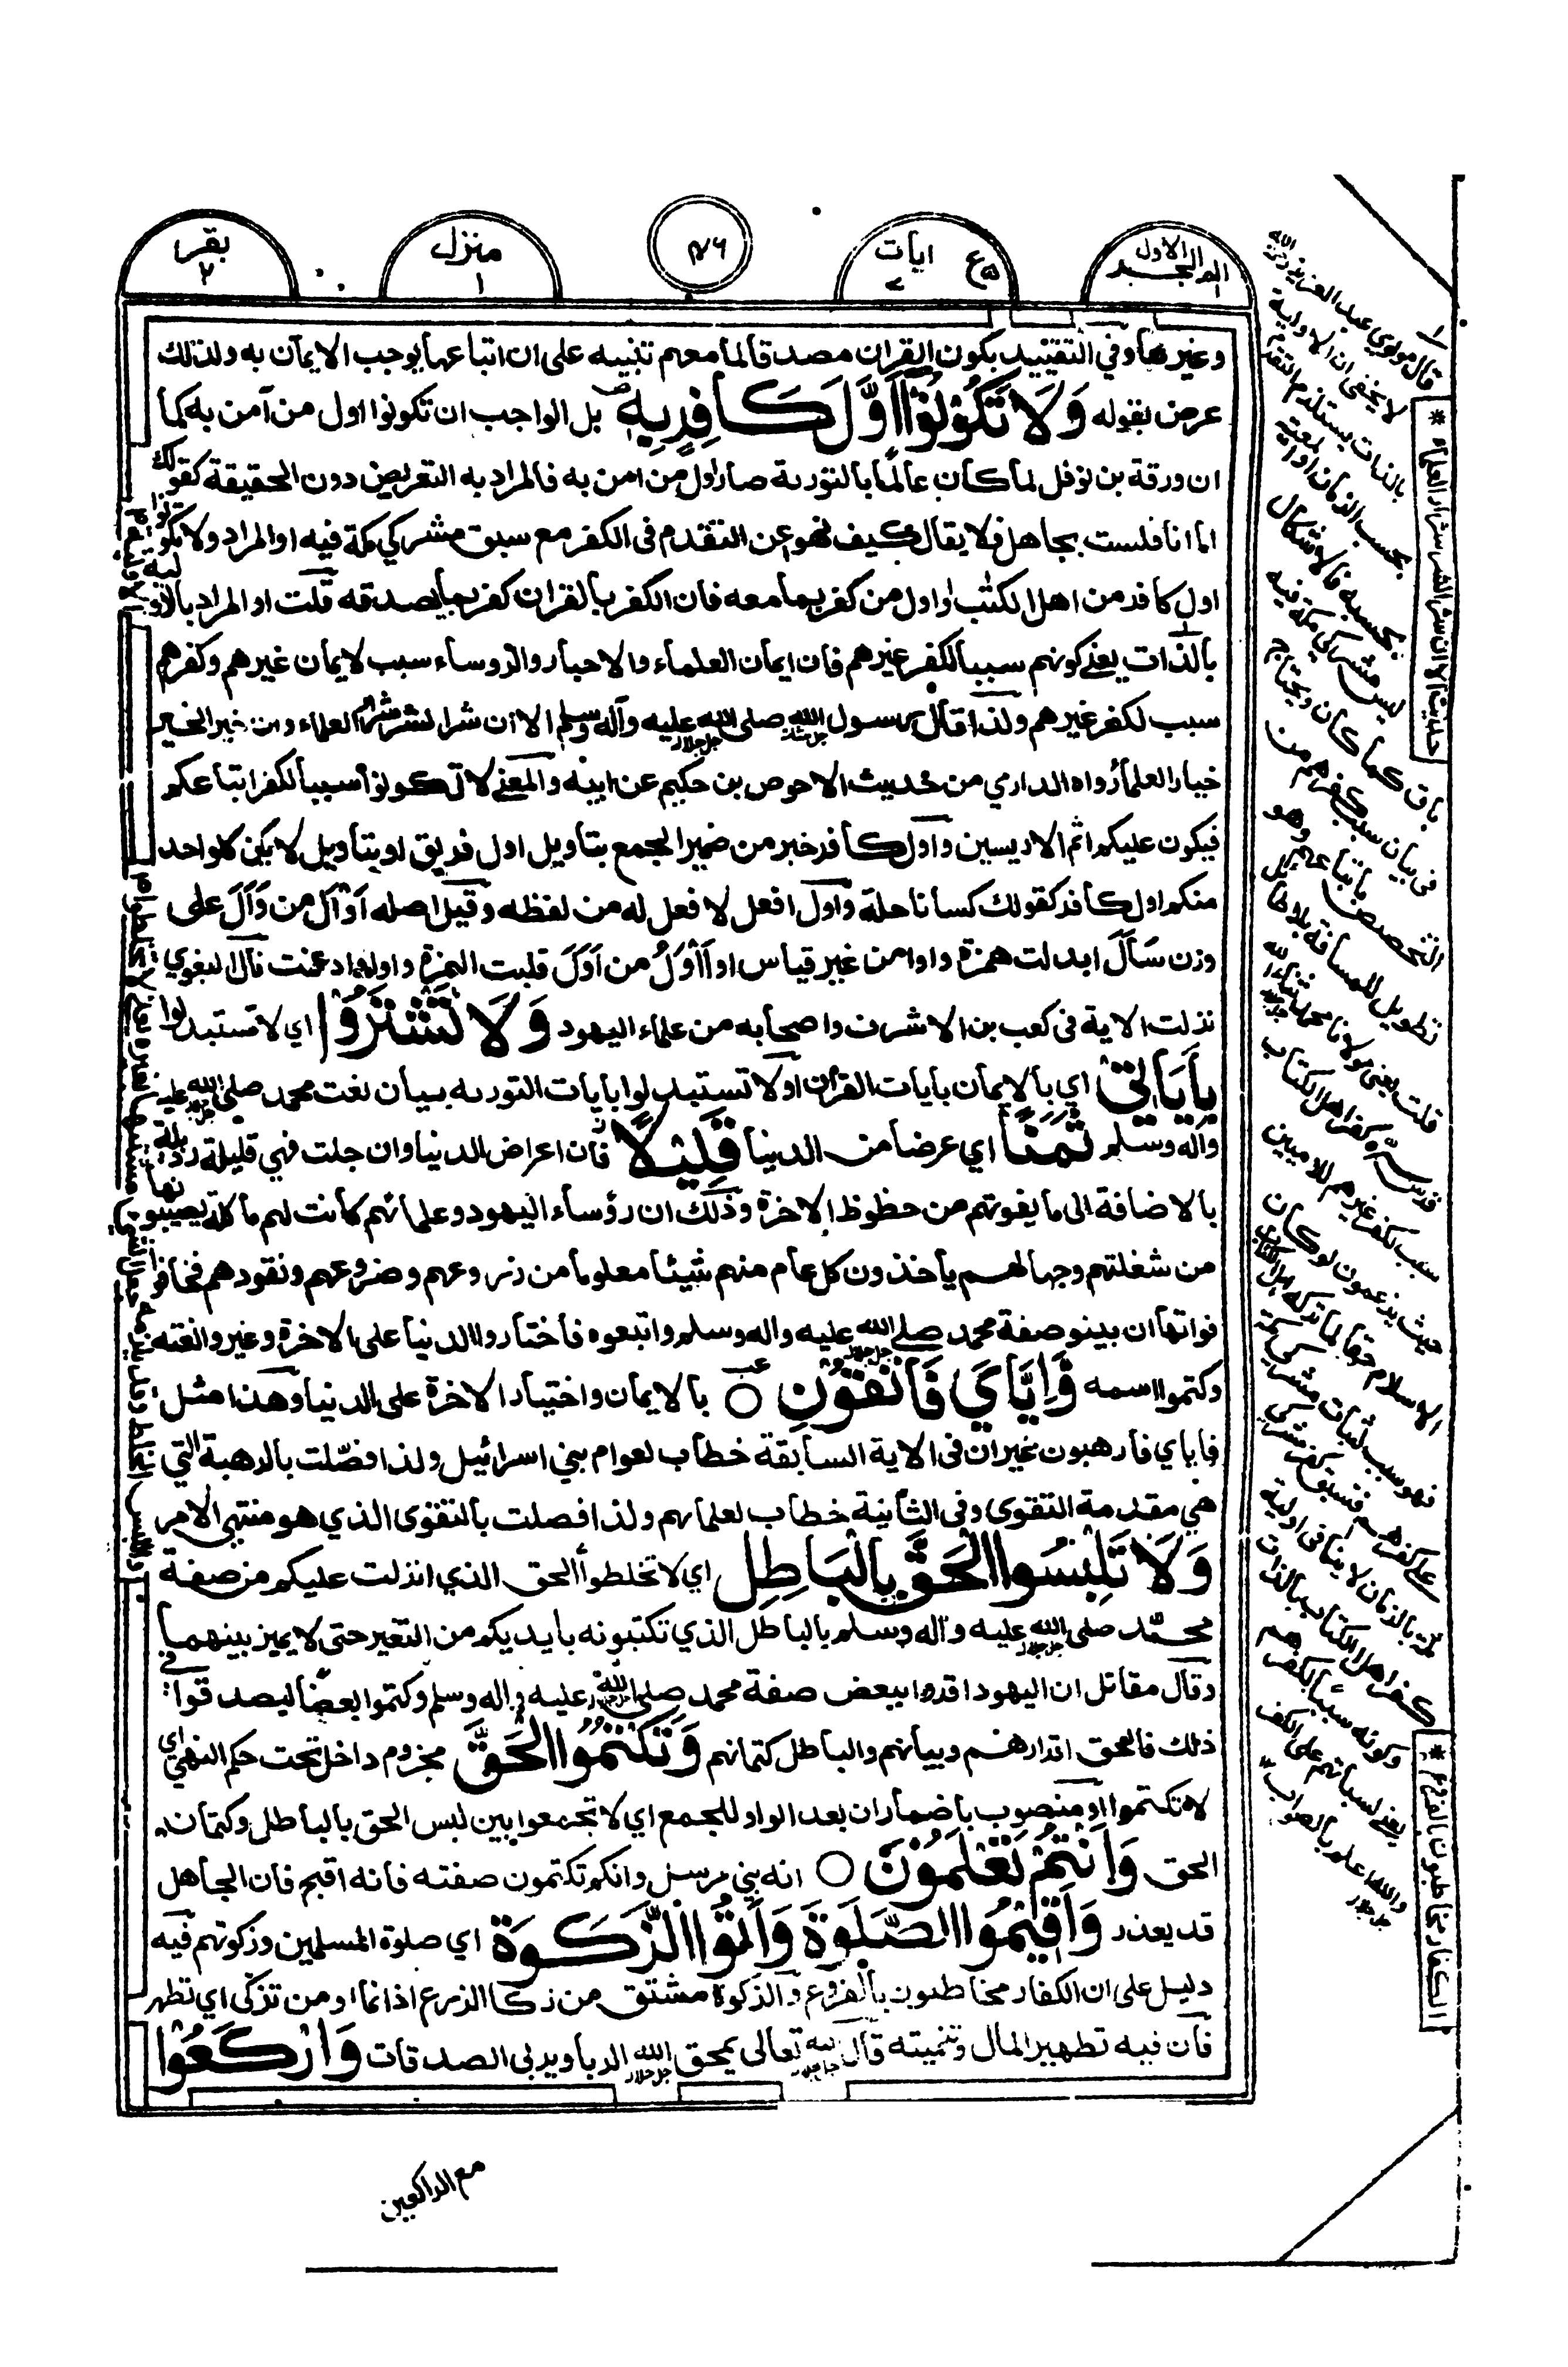 الم الجزء الاول
ايات
منزل
١
بقر
٢
وغيرها وفي التقييد بكون القران مصدقا لما معهم تنبيه على ان اتباعها يوجب الايمان به ولذلك
عرض بقوله وَلَا تَكُوْنُوْٓا اَوَّلَ كَافِرٍۢ بِهٖ بل الواجب ان تكونوا اول من آمن به كما
ان ورقة بن نوفل لما كان عالما بالتورىة صار اول من امن به فالمراد به التعريض دون الحقيقة كقولك
اما انا فلست بجاهل فلا يقال كيف نهو عن التقدم فى الكفر مع سبق مشركي مكة فيه او المراد ولا تكونوا
اول كافر من اهل الكتٰب او اول من كفر بما معه فان الكفر بالقران كفر بما يصدقه قلت او المراد بالاولية
بالذات يعنے كونهم سببا لكفر غيرهم فان ايمان العلماء والاحبار والرؤساء سبب لايمان غيرهم وكفرهم
سبب لكفر غيرهم ولذا قال رسول الله صلى الله عليه وآله وسلم الا ان شر الشر شرار العلماء وان خير الخير
خيار العلماء رواه الدارمي من حديث الاحوص بن حكيم عن ابيه والمعنے لا تكونوا سببا لكفر اتباعكم
فيكون عليكم اثم الاريسين واول كافر خبر من ضمير الجمع بتاويل اول فريق او بتاويل لا يكن كل واحد
منكم اول كافر كقولك كسانا حلة واول افعل لا فعل له من لفظه وقيل اصله اَوْأَل من وَأَلَ على
وزن سَأَلَ ابدلت همزة واوا من غير قياس او اَأْوَلُ من اَوَلَ قلبت الهمزة واوا وادغمت قال البغوي
نزلت الاية فى كعب بن الاشرف واصحابه من علماء اليهود وَلَا تَشْتَرُوْا اي لا تستبدلوا
بِاٰيَاتِيْ اي بالايمان بايات القران او لا تستبدلوا بايات التورىه ببيان نعت محمد صلى الله عليه
واله وسلم ثَمَنًا اي عرضا من الدنيا قَلِيْلًا فان اعراض الدنيا وان جلت فهي قليلة رذيلة
بالاضافة الى ما يفوتهم من حظوظ الاخرة وذلك ان رؤساء اليهود وعلمائهم كانت لهم ماكلة يصيبونها
من سفلتهم وجهالهم ياخذون كل عام منهم شيئا معلوما من زروعهم وضروعهم ونقودهم فخافوا
فواتها ان بينو صفة محمد صلے الله عليه واله وسلم واتبعوه فاختاروا الدنيا على الاخرة وغيروا نعته
وكتموا اسمه وَّاِيَّايَ فَاتَّقُوْنِ بالايمان واختيار الاخرة على الدنيا وهذا مثل
فاياي فارهبون غير ان فى الاية السابقة خطاب لعوام بني اسرائيل ولذا فصّلت بالرهبة التي
هي مقدمة التقوى وفى الثانية خطاب لعلمائهم ولذا فصلت بالتقوى الذي هو منتهى الامر
وَلَا تَلْبِسُوا الْحَقَّ بِالْبَاطِلِ اي لا تخلطوا الحق الذي انزلت عليكم من صفة
محمّد صلى الله عليه واله وسلم بالباطل الذي تكتبونه بايديكم من التغير حتى لا يميز بينهما
وقال مقاتل ان اليهود اقروا ببعض صفة محمد صلى الله عليه واله وسلم وكتموا بعضا ليصدقوا فى
ذلك فالحق اقرارهم وبيانهم والباطل كتمانهم وَتَكْتُمُوا الْحَقَّ مجزوم داخل تحت حكم النهى اي
لا تكتموا او منصوب باضمار ان بعد الواو للجمع اي لا تجمعوا بين لبس الحق بالباطل وكتمان
الحق وَاَنْتُمْ تَعْلَمُوْنَ انه نبي مرسل وانكم تكتمون صفته فانه اقبح فان الجاهل
قد يعذر وَاَقِيْمُوا الصَّلٰوةَ وَاٰتُوا الزَّكٰوةَ اي صلوة المسلمين وزكوتهم فيه
دليل على ان الكفار مخاطبون بالفروع والزكوة مشتق من زكا الزرع اذا نما او من تزكّى اي تطهر
فان فيه تطهير المال وتنميته قال الله تعالى يمحق الله الربا ويربى الصدقات وَارْكَعُوْا
مع الراكعين
قال مولوي عبد العزيز
لا يخفى ان الاولية
بالذات يستلزم التقدم
بحسب الزمان او المعية
بحسبه فالاشكال
ليس مشركي مكة فيه
باق كما كان ويحتاج
فى بيان سبب كفرهم من
التخصيص باتباعهم وهو
تطويل للمسافة بلا طائل
كفر اهل الكتاب
سبب لكفر غيرهم للاميين
حيث يزعمون لو كان
الاسلام حقا لما تركه اهل الكتاب
فهو سبب لثبات مشركي مكة
على كفرهم فسبق كفر مشركي
مكة بالزمان لا ينافى اولية
كفر اهل الكتاب بالذات
وكونه سببا لكفرهم
يعنے لسبأتهم على الكفر
والله اعلم بالصواب
حديث الا ان شر الشر شرار العلماء
الكفار مخاطبون بالفروع